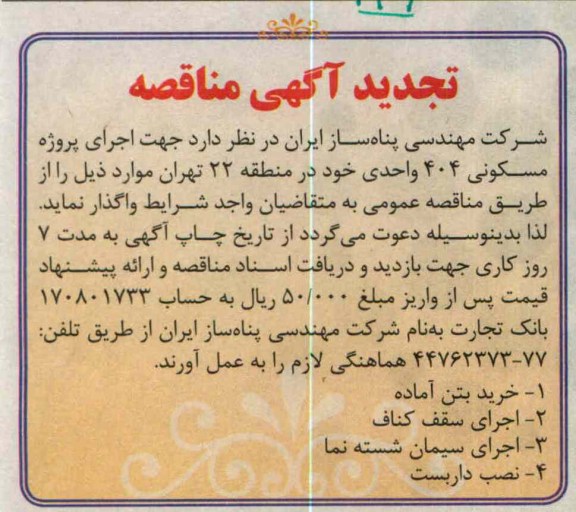 تجدید آگهی مناقصه
شرکت مهندسی پناه‌ساز ایران در نظر دارد جهت اجرای پروژه
مسکونی ۴۰۴ واحدی خود در منطقه ۲۲ تهران موارد ذیل را از
طریق مناقصه عمومی به متقاضیان واجد شرایط واگذار نماید.
لذا بدینوسیله دعوت می‌گردد از تاریخ چاپ آگهی به مدت ۷
روز کاری جهت بازدید و دریافت اسناد مناقصه و ارائه پیشنهاد
قیمت پس از واریز مبلغ ۵۰/۰۰۰ ریال به حساب ۱۷۰۸۰۱۷۳۳
بانک تجارت به‌نام شرکت مهندسی پناه‌ساز ایران از طریق تلفن:
۴۴۷۶۲۳۷۳-۷۷ هماهنگی لازم را به عمل آورند.
۱- خرید بتن آماده
۲- اجرای سقف کناف
۳- اجرای سیمان شسته نما
۴- نصب داربست